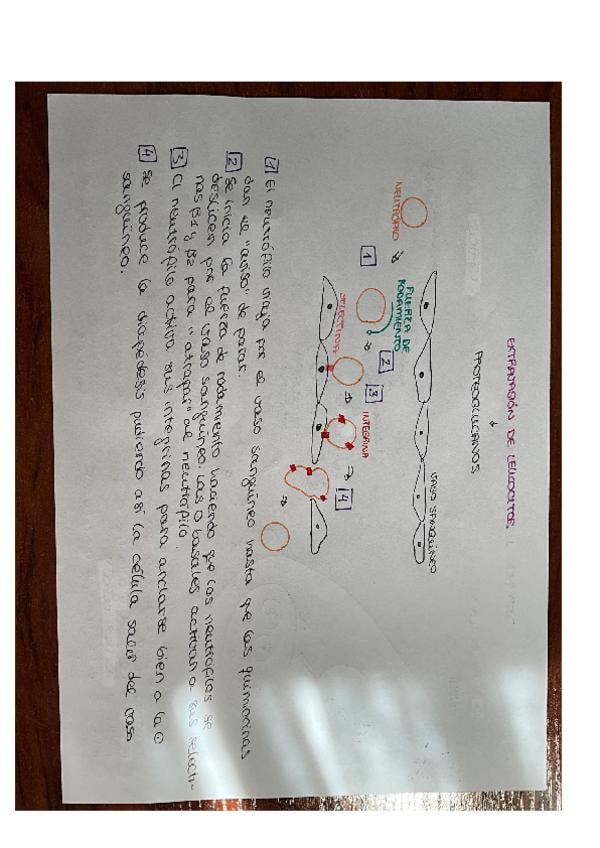 EXTRAVASIÓN DE LEUCOCITOS
PROTEOGLUCANOS
VASO SANGUÍNEO
NEUTRÓFILO
1
FUERZA DE
RODAMIENTO
2
3
INTEGRINA
4
SELECTINA
1 El neutrófilo viaja por el vaso sanguíneo hasta que las quimiocinas
dan el "aviso" de parar.
2 Se inicia la fuerza de rodamiento haciendo que los neutrófilos se
deslicen por el vaso sanguíneo. Las O basales activan a sus selecti-
nas β1 y β2 para "atrapar" al neutrófilo.
3 El neutrófilo activa sus integrinas para anclarse bien a la O
4 Se produce la diapédesis pudiendo así la célula salir del vaso
sanguíneo.